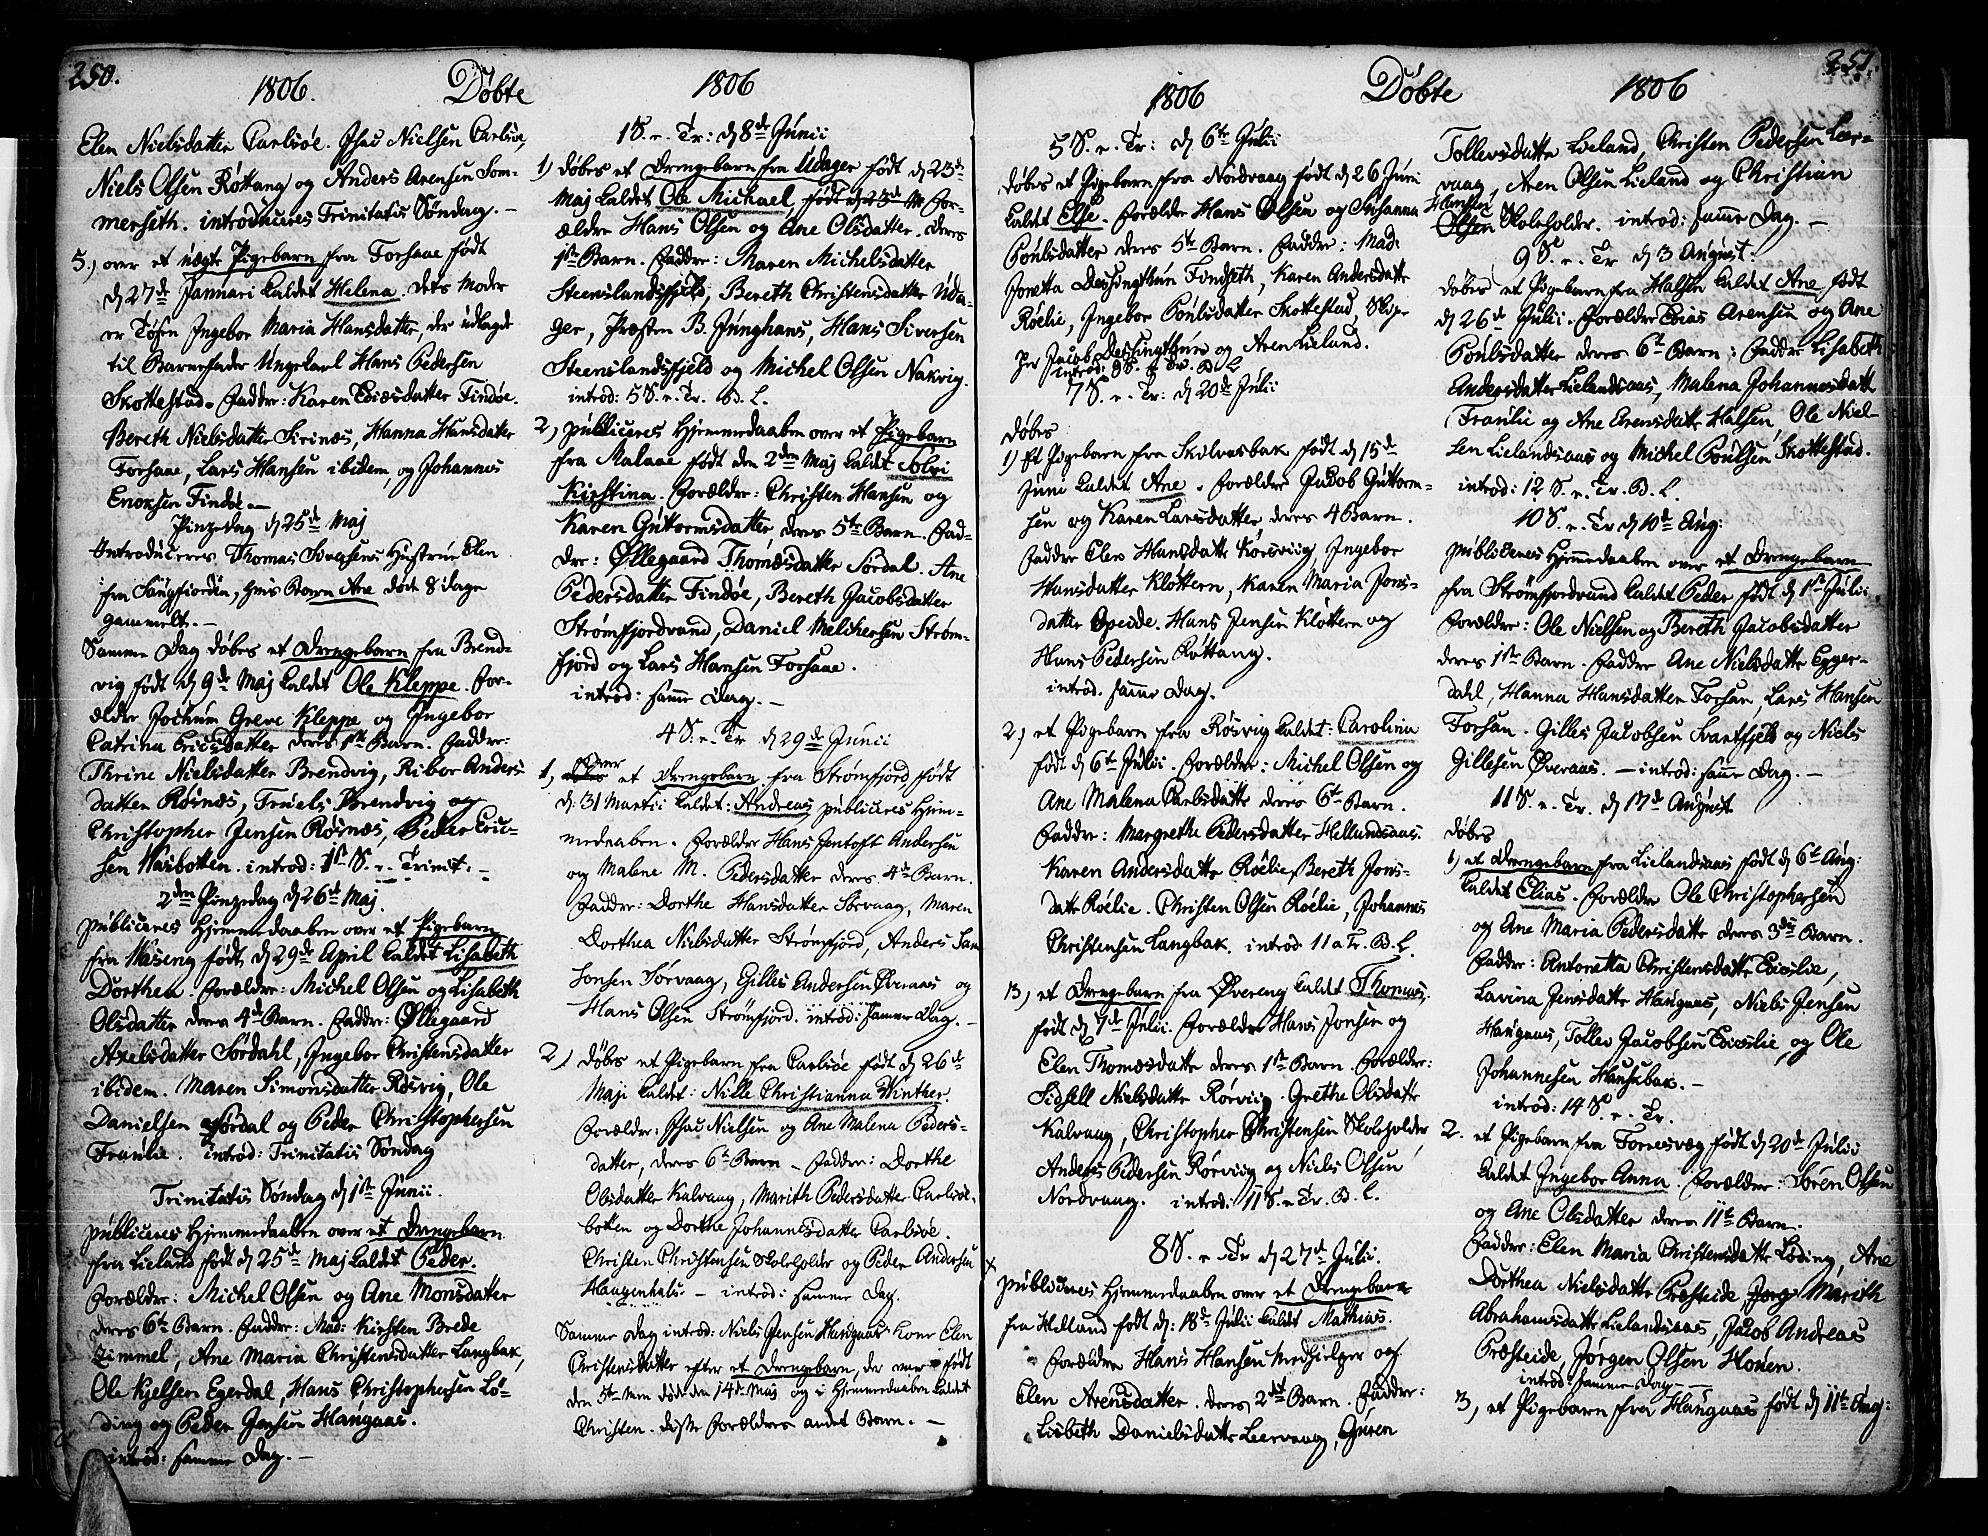 250.
1806.
Döbte
1806
Elen Nielsdatter Carlsöe. Esau Nielsen Carlsöe,
Niels Olsen Röttang og Anders Arensen Som-
merseth. introduceres Trinitatis Söndag. -
5.) over et uægte Pigebarn fra Forsaae födt
d 27de Januari kaldet Helena. dets Moder
er Tösen Ingebor Maria Hansdatter, der udlagde
til Barnefader Ungekarl Hans Pedersen
Skottestad. Faddr: Karen Eliæsdatter Findöe.
Bereth Nielsdatter Sirinæs, Hanna Hansdatter
Forsaae, Lars Hansen ibidem, og Johannes
Enoksen Findöe -
Pinzedag d 25de Maj
Introduceres Thomas Iversens Hustrue Elen
fra Laugfiorden, hvis Barn Ane döde 8 dage
gammelt. -
Samme Dag döbes et Drengebarn fra Brend-
vig födt d 9de Maj kaldet Ole Kleppe. For-
ældre Jochum Greve Kleppe og Ingebor
Catrina Ericsdatter deres 1ste Barn. Faddre:
Thrine Nielsdatter Brendvig, Ribor Anders
datter Rösnæs, Truels Brendvig og
Christopher Jensen Rösnæs, Peder Eric-
sen Vasbotten. introd: 1ste S. e. Trinit: -
2den Pinzedag d 26de Maj
publiceres Hjemmedaaben over et Pigebarn
fra Waseng födt d 29de April kaldet Lisabeth
Dorthea. Forældre: Michel Olsen og Lisabeth
Olsdatter deres 4de Barn. Faddr: Øllegaard
Axelsdatter Sördahl, Ingebor Christensdatter
ibidem. Maren Simonsdatter Rösvig, Ole
Danielsen Sördal og Peder Christophersen
Tranlie. introd: Trinitatis Söndag
Trinitatis Söndag d 1ste Junii.
publiceres Hjemmedaaben over et Drengebarn
fra Lieland födt d 25de Maj kaldet Peder.
Forældre: Michel Olsen og Ane Monsdatter
deres 6te Barn. Faddr: Mad: Kirsten Brede
Zimmel, Ane Maria Christensdatter Langbak,
Ole Kjelsen Egerdal, Hans Christophersen Lö-
ding og Peder Jensen Haugaas.
introd: samme Dag. -
1 S. e. Tr: d 8de Junii
1) döbes et Drengebarn fra Udager födt d 23de
Maj kaldet Ole Michael For-
ældre Hans Olsen og Ane Olsdatter. deres
1ste Barn. Faddr: Maren Michelsdatter
Steenslandsfjeld, Bereth Christensdatter Uda-
ger, Præsten B. Junghans, Hans Siversen
Steenslandsfjeld og Michel Olsen Nakvig.
introd: 5 S. e. Tr. B. L.
2) publiceres Hjemmedaaben over et Pigebarn
fra Malaae födt den 2den Maj kaldet Solvi
Kirstina. Forældre: Christen Hansen og
Karen Guttormsdatter, deres 5te Barn. Fad-
dre: Øllegaard Thomæsdatter Sördal. Ane
Pedersdatter Findöe, Bereth Jacobsdatter
Strömfjordvand, Daniel Melkersen Ström-
fjord og Lars Hansen Forsaae.
introd: samme Dag. -
4 S. e. Tr d 29de Junii
1) over et Drengebarn fra Strömfjord, födt
d. 31 Martii kaldet: Andreas publiceres Hjem-
medaaben. Forældre Hans Jentoft Andersen
og Malene M. Pedersdatter deres 4de Barn.
Faddr: Dorthe Hansdatter Sörvaag, Maren
Dorthea Nielsdatter Strömfjord, Anders Jan
Jonsen Sörvaag, Gilles Andersen Øveraas og
Hans Olsen Strömfjord. introd: samme Dag. -
2) döbes et Pigebarn fra Carlsöe födt d 26de
Maji kaldet: Nille Christianna Winther.
Forældre: Esau Nielsen og Ane Malena Peders-
datter, deres 6te Barn - Faddr: Dorthe
Olsdatter Kalvaag, Marith Pedersdatter Carlsöe-
botten og Dorthe Johannesdatter Carlsöe.
Christen Christensen Skoleholder og Peder Andersen
Haugenhals - introd: samme Dag.
Samme Dag introd: Niels Jensen Haugaas Kone Elen
Christensdatter efter et Drengebarn, der var födt
den 5te den 14de Maj og i Hjemmedaaben kaldet
Christen. disse Forældres andet Barn. -
251.
1806
Döbte
1806
5 S. e. Tr: d 6te Julii
döbes et Pigebarn fra Nordvaag födt d 26 Juni
kaldet Else. Forældre Hans Olsen og Susanna
Poulsdatter deres 5te Barn. Faddr: Mad:
Joretta Dessingthun Findseth, Karen Andersdatter
Röelie, Ingebor Poulsdatter Skottestad, Skip-
per Jacob Dessingthun og Aren Lieland.
introd: 9 S. e. Tr. B. L
7 S. e. Tr: d 20de Julii
döbes
1) Et Pigebarn fra Skilvasbak födt d 15de
Juni kaldet Ane. Forældre Jacob Guttorm-
sen og Karen Larsdatter deres 4 Barn.
Faddr Elen Hansdattr Korsviig Ingebor
Hansdatter Klöttern, Karen Maria Jons-
datter Speide. Hans Jensen Klöttern og
Hans Pedersen Röttang.
introd. samme Dag.
2.) et Pigebarn fra Rösvig kaldet: Carolina
födt d 6te Julii. Forældre: Michel Olsen og
Ane Malena Carlsdattr deres 6te Barn.
Faddr: Margrethe Pedersdatter Hellandsaas.
Karen Andersdatter Röelie, Bereth Jons-
dattr Röelie. Christen Olsen Röelie, Johannes
Christensen Langbak. introd 11 a Tr. B. L.
3) et Drengebarn fra Øvereng kaldet Thomas.
födt d 7de Julii. Forældre Hans Jonsen og
Elen Thomæsdatter deres 1ste Barn. Forældre:
Sidsell Nielsdatter Rörviig. Grethe Olsdattr
Kalvaag, Christopher Christensen Skoleholder
Anders Pedersen Rörviig og Niels Olsen
Nordvaag. introd: 11 S. e Tr. B. L.
8 S. e Tr d 27de Julii.
x
publiceres Hjemmedaaben over et Drengebarn
fra Helland födt d: 18de Julii kaldt Mathias.
Forældre Hans Hansen Medhielper og
Elen Arensdatter. deres 2det Barn. Faddr:
Lisbeth Danielsdattr Leervaag, Guren
Tollevsdattr Lieland, Christen Pedersen Leer-
vaag, Aren Olsen Lieland og Christian
Hansen
Olsen Skoleholder. introd: samme Dag. -
9 S. e. Tr d 3 August.
döbes et Pigebarn fra Halsen kaldet Ane födt
d 26de Julii. Forældre Elias Arensen og Ane
Poulsdatter deres 6te Barn: Faddr Lisabeth
Andersdatter Lielandsaas, Malena Johannesdattr
Tranlie og Ane Evensdattr Halsen, Ole Niel-
sen Lielandsaas og Michel Poulsen Skottestad.
introd: 12 S. e. Tr. B. L.
10 S. e. Tr d 10de Aug:
publiceres Hjemmedaaben over et Drengebarn
fra Strömfjordvand kaldet Peder födt d 1ste Julii
Forældre: Ole Nielsen og Bereth Jacobsdatter
deres 1ste Barn. Faddr Ane Nielsdattr Egger-
dahl, Hanna Hansdatter Forsaa, Lars Hansen
Forsaa. Gilles Jacobsen Svartfjeld og Niels
Gillesen Øveraas. - introd: samme Dag. -
11 S. e. Tr. d 17de August
döbes
1) et Drengebarn fra Lielandsaas födt d 6te Aug:
kaldet Elias. Forældre Ole Christophersen
og Ane Maria Pedersdattr deres 3die Barn.
Faddr: Antonetta Christensdattr Evislie,
Lavina Jensdattr Haugaas, Niels Jensen
Haugaas, Tollev Jacobsen Evislie og Ole
Johannesen Hansebak. -
introd: 14 S. e. Tr.
2. et Pigebarn fra Fornesvæg födt d 20de Julii
kaldet Ingebor Anna. Forældre: Sören Olsen
og Ane Olsdatter deres 11te Barn.
Faddr: Elen Maria Christensdattr Löding, Ane
Dorthea Nielsdattr Præsteide, Marith
Abrahamsdattr Lielandsaas, Jacob Andreas
Præsteide, Jörgen Olsen Honen.
introd: samme Dag -
3) et Pigebarn fra Haugaas födt d 11te Aug: